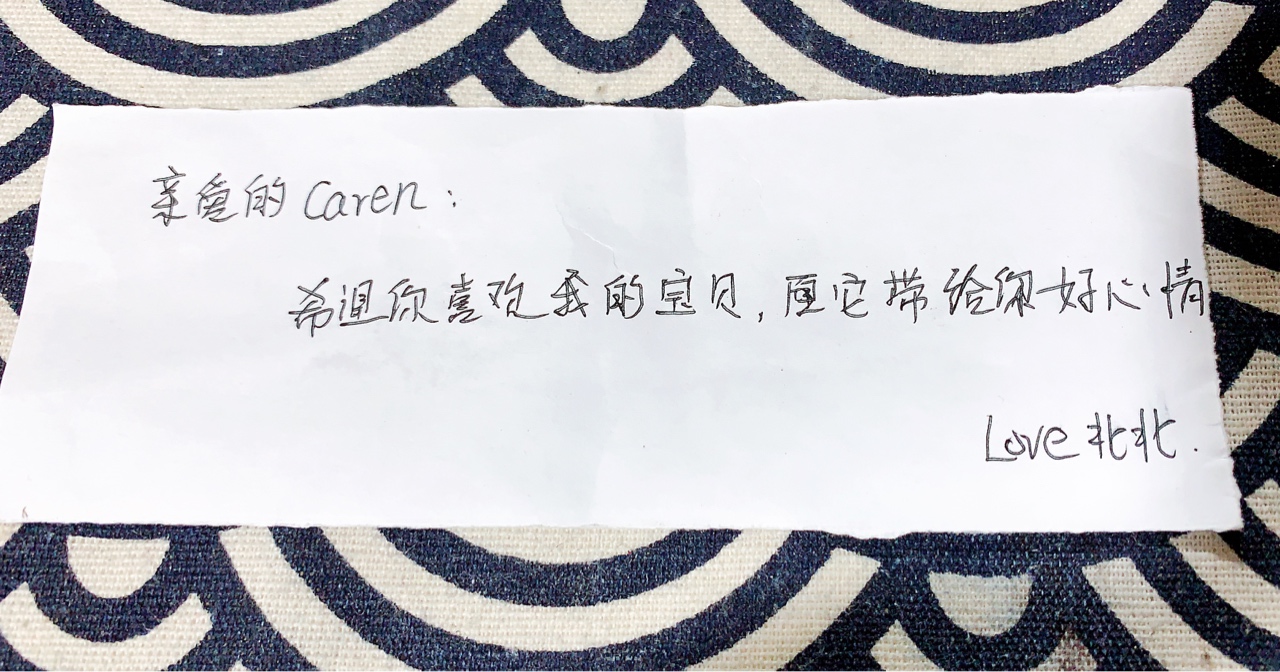 亲爱的Caren:
希望你喜欢我的宝贝,愿它带给你好心情
Love北北.